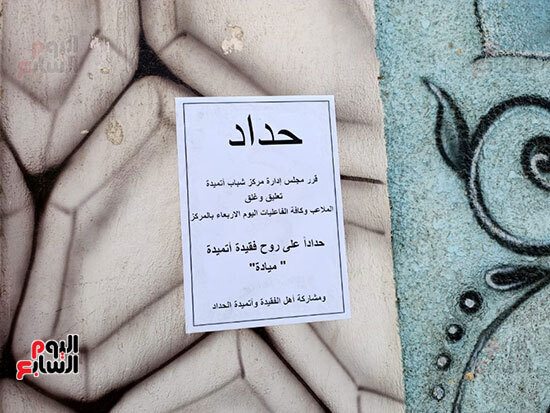 حداد
قرر مجلس إدارة مركز شباب أتميدة
تعليق وغلق
الملاعب وكافة الفاعليات اليوم الاربعاء بالمركز
حداداً على روح فقيدة أتميدة
" ميادة"
ومشاركة أهل الفقيدة وأتميدة الحداد
اليوم السابع
اليوم السابع
اليوم السابع